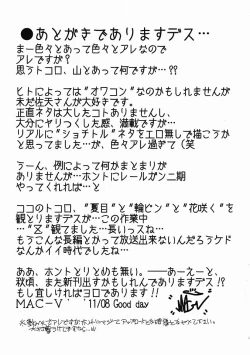 ●あとがきでありますデス…
まー色々とあって色々とアレなので
アレですが?
思うトコロ、山とあって何ですが…??
ヒトによっては"オワコン"なのかもしれませんが
未だ佐天さんが大好きです。
正直ネタは大したコトありませんし、
大分にヤりつくした感、満載ですが…
リアルに"ショチトル"ネタをエロ無しで描こうか
と思ってましたが…、色々アレ過ぎて(笑
うーん、例によって何かまとまりが
ありませんが…ホントにレールガン二期
やってくれれば…と
ココのトコロ、"夏目"と"輪ピン"と"花咲く"を
観とりますデスが…この作業中
…"☒"観てました…長いっスね…
もうこんな長編とかって放送出来ないんだろうケド
なんかイイ時代でしたね…
ああ、ホントとりとめも無い。――あーえーと、
秋頃、また新刊出すかもしんしれんでありますデス!!
もし宜しければヨロであります!!
MAC-V '11/08 Good day